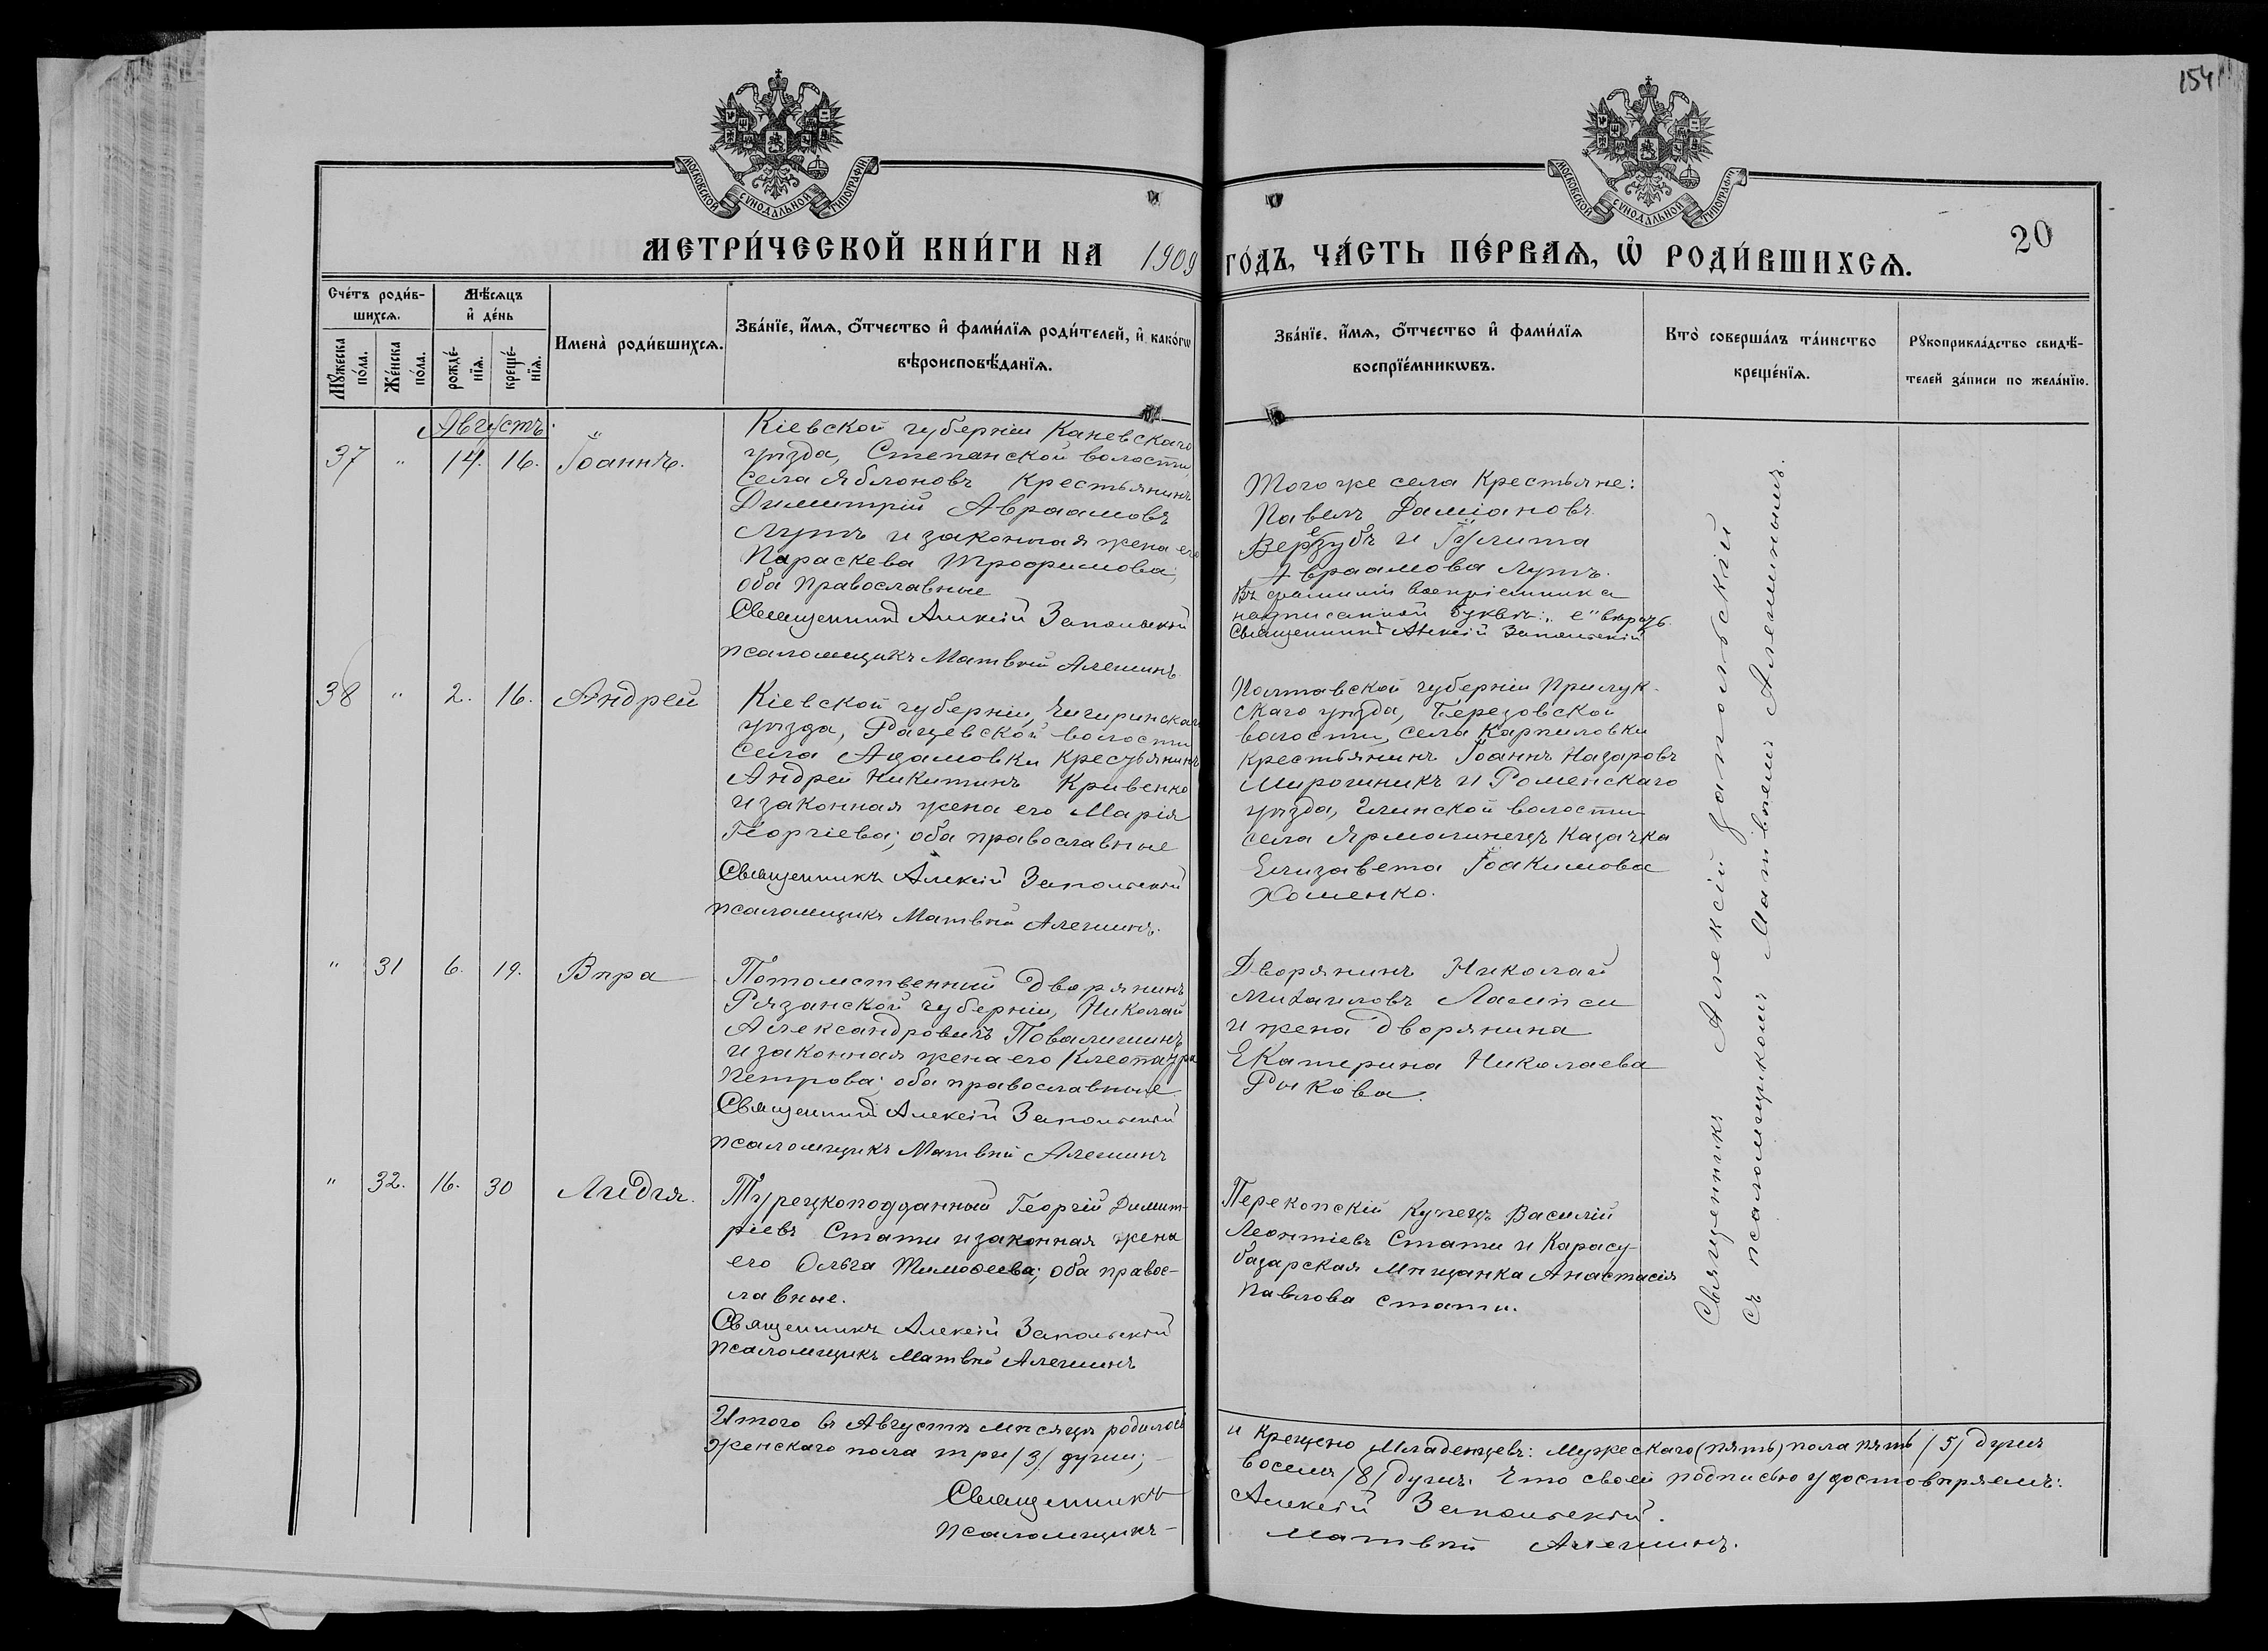 154
МОСКОВСКОЙ СѴНОДАЛЬНОЙ ТИПОГРАФІИ
МОСКОВСКОЙ СѴНОДАЛЬНОЙ ТИПОГРАФІИ
МЕТРИ́ЧЕСКОЙ КНИ́ГИ НА 1909 ГО́ДЪ, ЧА́СТЬ ПЕ́РВАѦ, Ѡ҆ РОДИ́ВШИХСѦ.
20
Сче́тъ роди́в-
шихсѧ.
Мꙋ́жеска по́ла.
Же́нска по́ла.
Мѣ́сѧцъ
и҆ де́нь
рожде́-
нїѧ.
креще́-
нїѧ.
Имена̀ роди́вшихсѧ.
Зва́нїе, и҆́мѧ, ѻ҆́тчество и҆ фами́лїѧ роди́телей, и҆ како́гѡ
вѣроисповѣ́данїѧ.
Зва́нїе, и҆́мѧ, ѻ҆́тчество и҆ фами́лїѧ
воспрїе́мникѡвъ.
Кто̀ соверша́лъ та́инство
креще́нїѧ.
Рꙋкоприкла́дство свидѣ́-
телей за́писи по жела́нїю.
Августъ.
37 " 14. 16. Іоаннъ.
Кіевской губерніи Каневскаго
уѣзда, Степанской волости,
села Яблоновъ Крестьянинъ
Димитрій Авраамовъ
Лутъ и законная жена его
Параскева Трофимова;
оба православные
Священникъ Алексій Запольскій
псаломщикъ Матвѣй Алешинъ
Того же села Крестьяне:
Павелъ Даміановъ
Верезубъ и Іулита
Авраамова Лутъ.
Въ фамиліи воспріемника
надписанной буквѣ: „е" вѣрить.
Священникъ Алексій Запольскій
38 " 2. 16. Андрей
Кіевской губерніи, Чигиринскаго
уѣзда, Рацевской волости
села Адамовки крестьянинъ
Андрей Никитинъ Кривенко
и законная жена его Марія
Георгіева; оба православные
Священникъ Алексій Запольскій
псаломщикъ Матвѣй Алешинъ.
Полтавской губерніи Прилук-
скаго уѣзда, Березовской
волости, села Карпиловки
крестьянинъ Іоаннъ Назаровъ
Мирошникъ и Роменскаго
уѣзда, Глинской волости
села Ярмолинецъ казачка
Елизавета Іоакимова
Хоменко.
" 31 6. 19. Вѣра
Потомственный Дворянинъ
Рязанской губерніи, Николай
Александровичъ Повалишинъ
и законная жена его Клеопатра
Петрова; оба православные
Священникъ Алексій Запольскій
псаломщикъ Матвѣй Алешинъ
Дворянинъ Николай
Михаиловъ
и жена дворянина
Екатерина Николаева
Рыкова.
" 32. 16. 30 Лидія.
Турецкоподданный Георгій Димит-
ріевъ Стати и законная жена
его Ольга Тимоѳеева; оба правос-
лавные.
Священникъ Алексій Запольскій
псаломщикъ Матвѣй Алешинъ
Перекопскій Купецъ Василій
Леонтіевъ Стати и Карасу-
базарская Мѣщанка Анастасія
Павлова Стати.
Священникъ Алексій Запольскій
съ псаломщикомъ Матвѣемъ Алешинымъ.
Итого въ Августѣ мѣсяцѣ родилось и крещено младенцевъ: Мужескаго (пять) пола пять /5/ душъ
женскаго пола три /3/ души; восемь /8/ душъ. Что своей подписью удостовѣряемъ:
Священникъ Алексій Запольскій.
Псаломщикъ Матвѣй Алешинъ.